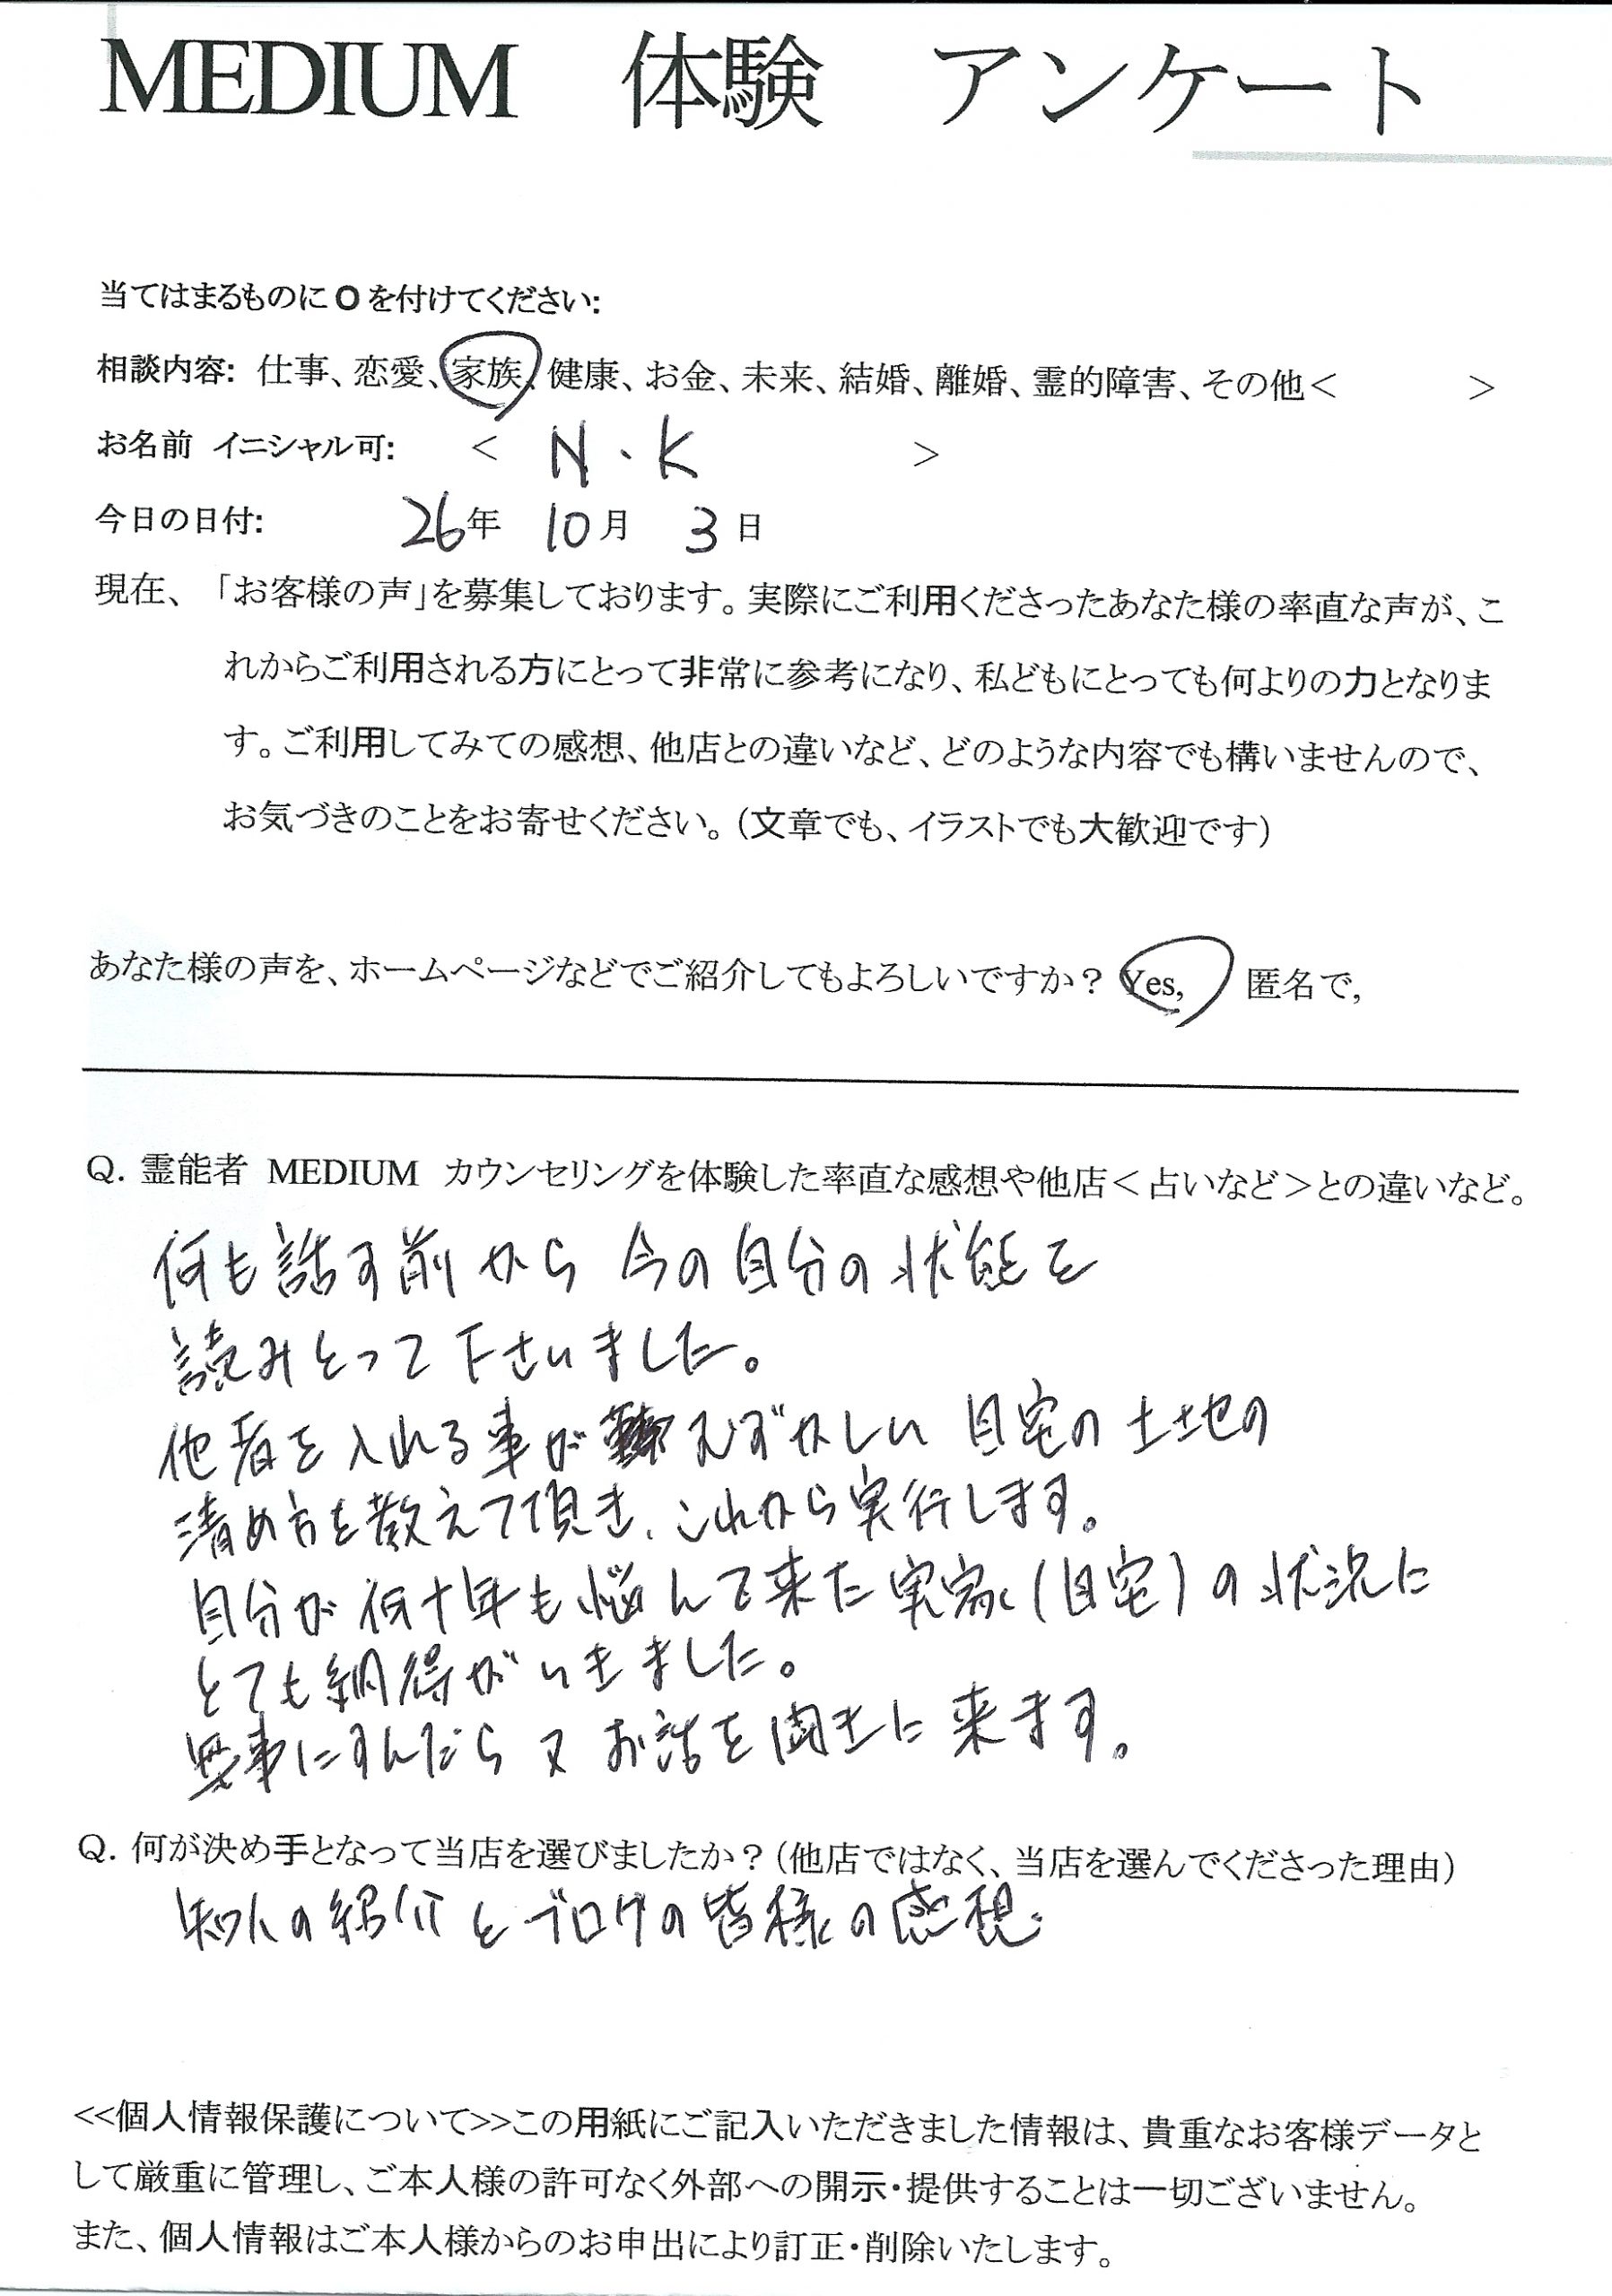 MEDIUM 体験 アンケート
当てはまるものにOを付けてください:
相談内容: 仕事、恋愛、家族、健康、お金、未来、結婚、離婚、霊的障害、その他< >
お名前 イニシャル可: < N・K >
今日の日付: 26年 10月 3日
現在、「お客様の声」を募集しております。実際にご利用くださったあなた様の率直な声が、こ
れからご利用される方にとって非常に参考になり、私どもにとっても何よりの力となりま
す。ご利用してみての感想、他店との違いなど、どのような内容でも構いませんので、
お気づきのことをお寄せください。(文章でも、イラストでも大歓迎です)
あなた様の声を、ホームページなどでご紹介してもよろしいですか? Yes, 匿名で,
Q. 霊能者 MEDIUM カウンセリングを体験した率直な感想や他店<占いなど>との違いなど。
何も話す前から 今の自分の状態を
読みとって下さいました。
他者を入れる事がむずかしい 自宅の土地の
清め方を教えて頂き、これから実行します。
自分が何十年も悩んで来た実家(自宅)の状況に
とても納得がいきました。
無事にすんだら又お話を聞きに来ます。
Q. 何が決め手となって当店を選びましたか?(他店ではなく、当店を選んでくださった理由)
知人の紹介とブログの皆様の感想
<<個人情報保護について>>この用紙にご記入いただきました情報は、貴重なお客様データと
して厳重に管理し、ご本人様の許可なく外部への開示・提供することは一切ございません。
また、個人情報はご本人様からのお申出により訂正・削除いたします。